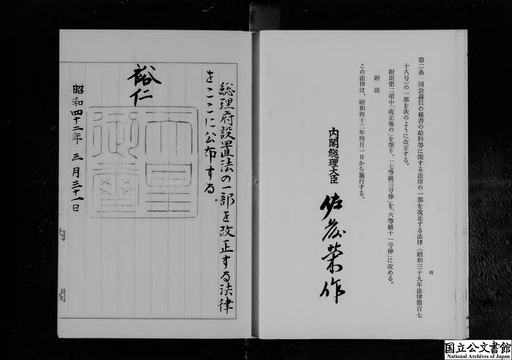 第二条 国会議員の秘書の給料等に関する法律の一部を改正する法律(昭和三十九年法律第百七
十八号)の一部を次のように改正する。
附則第二項中「改正後の」を削り、「七等級三号俸」を「六等級十一号俸」に改める。
附 則
この法律は、昭和四十二年四月一日から施行する。
四
内閣総理大臣 佐藤榮作
総理府設置法の一部を改正する法律
をここに公布する。
裕仁
天皇
御璽
昭和四十二年 三月三十一日
内閣
国立公文書館
National Archives of Japan